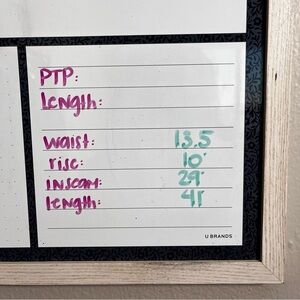 PTP:
Length:
Waist: 13.5
rise: 10"
inseam: 29"
Length: 41
U BRANDS